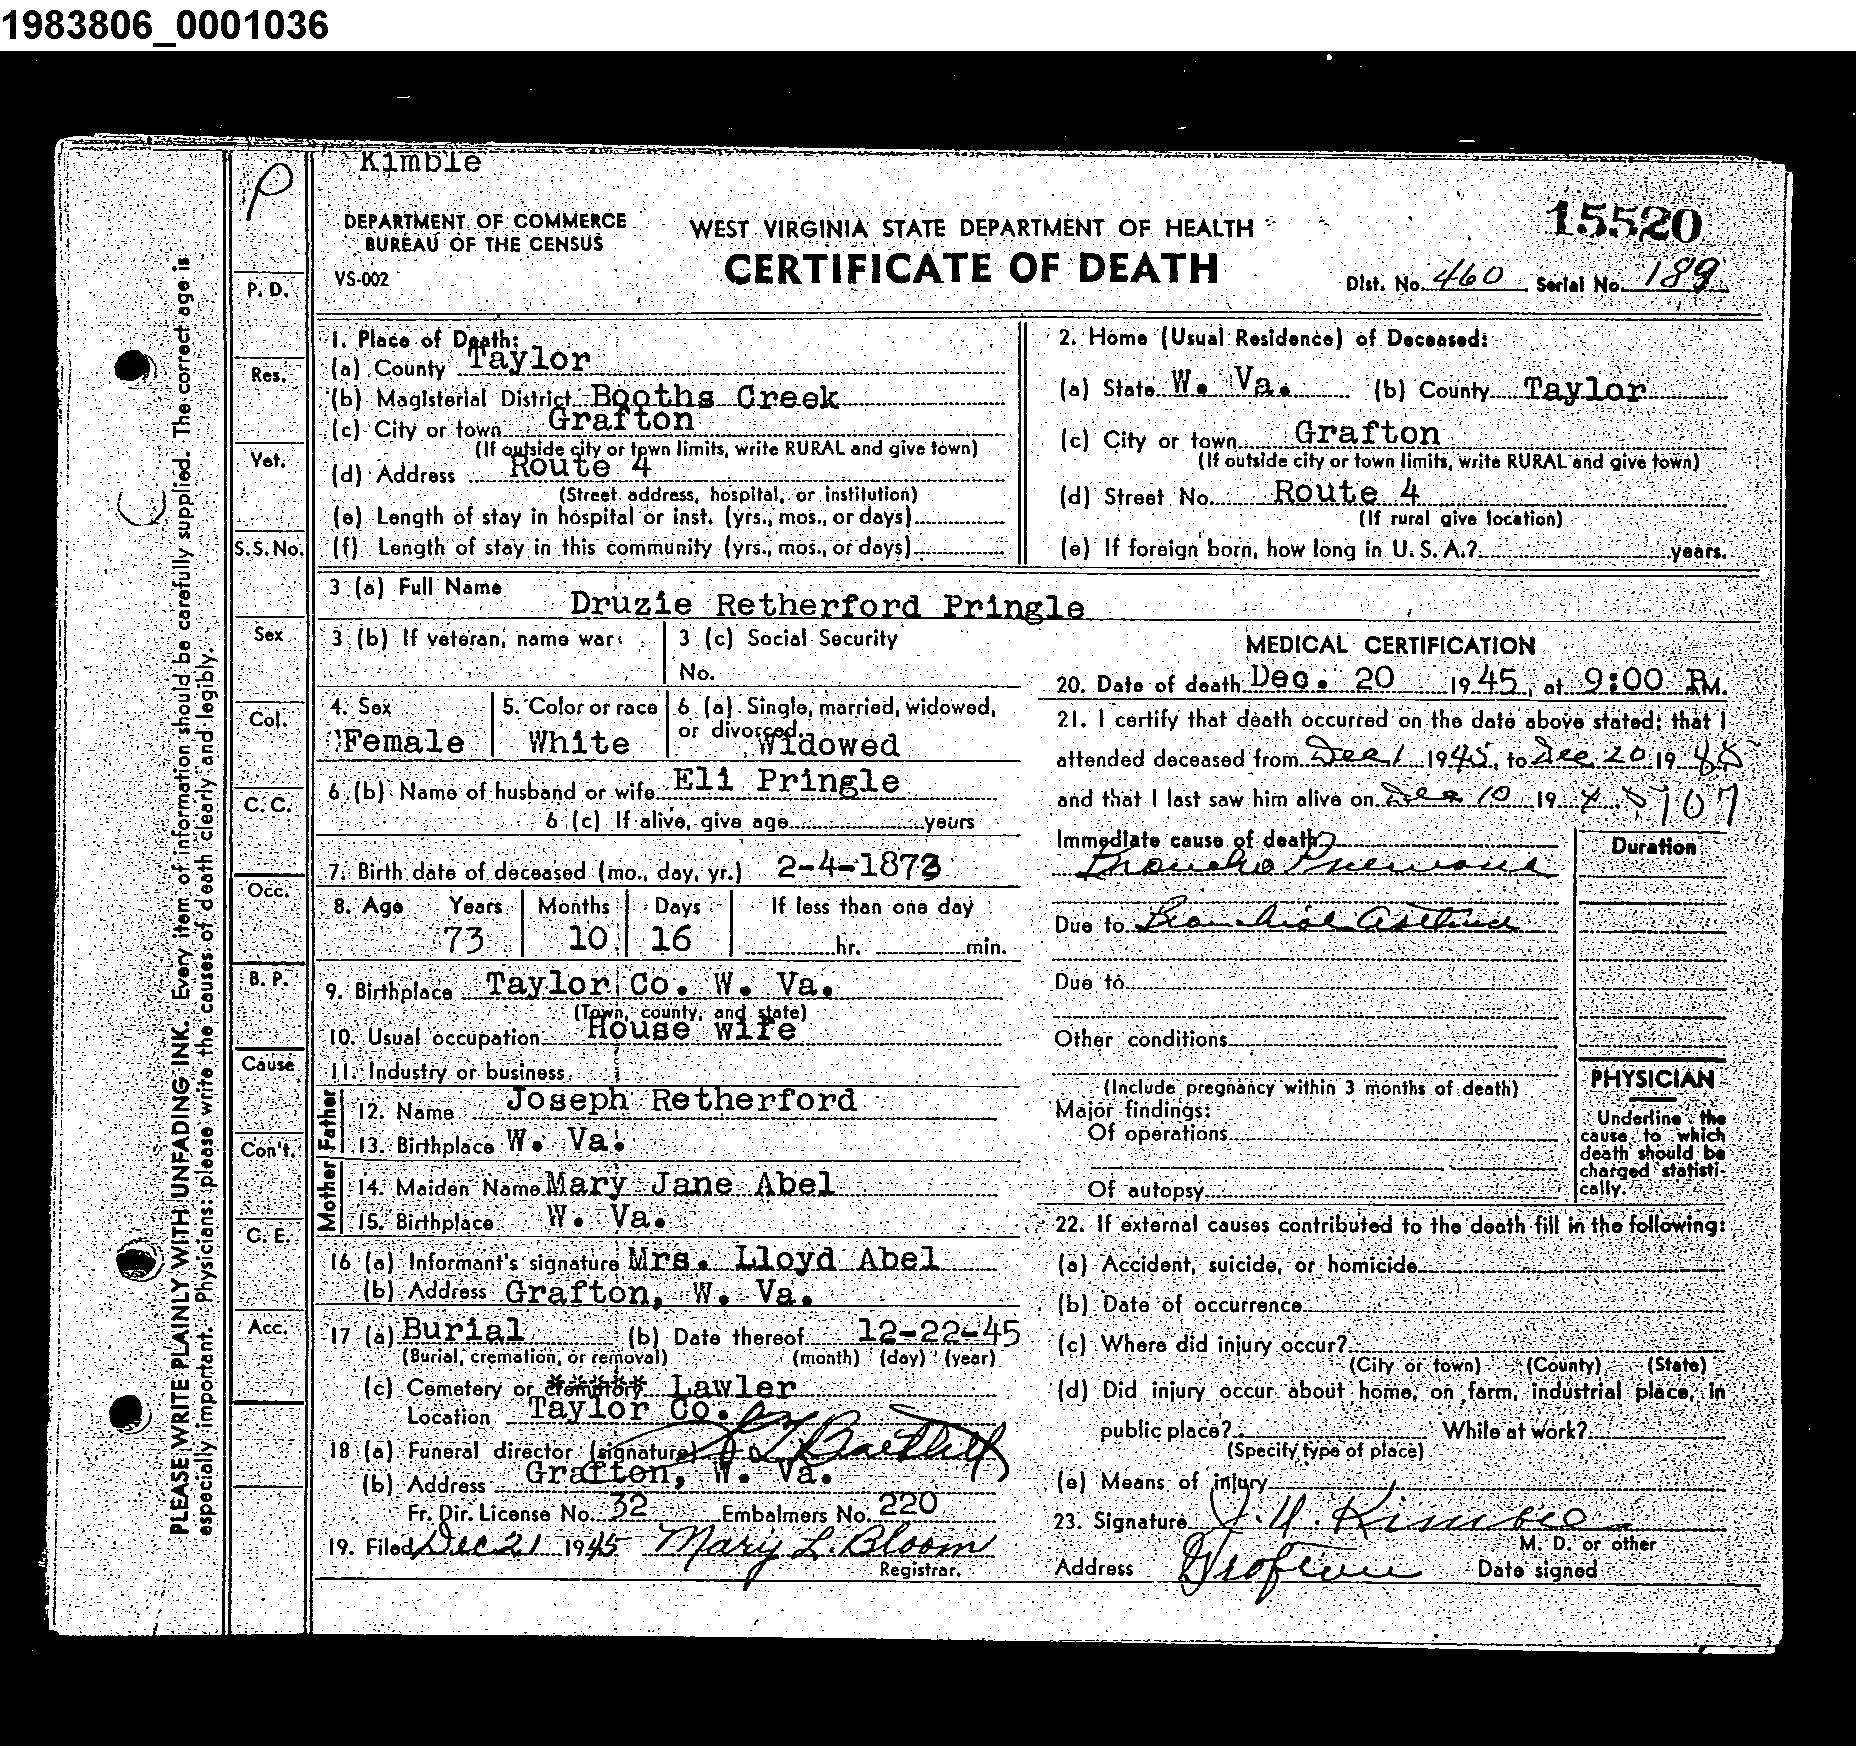 1983806_0001036
Kimble
P
DEPARTMENT OF COMMERCE
BUREAU OF THE CENSUS
VS-002
WEST VIRGINIA STATE DEPARTMENT OF HEALTH
CERTIFICATE OF DEATH
15520
Dist. No. 460 Serial No. 189
PLEASE WRITE PLAINLY WITH UNFADING INK. Every item of information should be carefully supplied. The correct age is
especially important. Physicians: please write the causes of death clearly and legibly.
P. D.
Res.
Vet.
S.S. No.
Sex
Col.
C. C.
Occ.
B. P.
Cause
Con't.
C. E.
Acc.
1. Place of Death:
(a) County Taylor
(b) Magisterial District Booths Creek
(c) City or town Grafton
(If outside city or town limits, write RURAL and give town)
(d) Address Route 4
(Street address, hospital, or institution)
(e) Length of stay in hospital or inst. (yrs., mos., or days)
(f) Length of stay in this community (yrs., mos., or days)
2. Home (Usual Residence) of Deceased:
(a) State W. Va. (b) County Taylor
(c) City or town Grafton
(If outside city or town limits, write RURAL and give town)
(d) Street No. Route 4
(If rural give location)
(e) If foreign born, how long in U. S. A.? years.
3 (a) Full Name Druzie Retherford Pringle
3 (b) If veteran, name war
3 (c) Social Security
No.
4. Sex Female
5. Color or race White
6 (a) Single, married, widowed,
or divorced. Widowed
6 (b) Name of husband or wife Eli Pringle
6 (c) If alive, give age years
7. Birth date of deceased (mo., day, yr.) 2-4-1872
8. Age Years Months Days If less than one day
73 10 16 hr. min.
9. Birthplace Taylor Co. W. Va.
(Town, county, and state)
10. Usual occupation House wife
11. Industry or business
Father
12. Name Joseph Retherford
13. Birthplace W. Va.
Mother
14. Maiden Name Mary Jane Abel
15. Birthplace W. Va.
16 (a) Informant's signature Mrs. Lloyd Abel
(b) Address Grafton, W. Va.
17 (a) Burial (b) Date thereof 12-22-45
(Burial, cremation, or removal) (month) (day) (year)
(c) Cemetery or crematory Lawler
Location Taylor Co.
18 (a) Funeral director (signature)
(b) Address Grafton, W. Va.
Fr. Dir. License No. 32 Embalmers No. 220
19. Filed Dec 21 1945 Mary L. Bloom
Registrar.
MEDICAL CERTIFICATION
20. Date of death Dec. 20 1945, at 9:00 P.M.
21. I certify that death occurred on the date above stated; that I
attended deceased from Dec 1 1945, to Dec 20 1945
and that I last saw him alive on Dec 10 1945 107
Immediate cause of death
Broncho Pneumonia
Due to Bronchial Asthma
Due to
Other conditions
(Include pregnancy within 3 months of death)
Major findings:
Of operations
Of autopsy
Duration
PHYSICIAN
Underline the
cause to which
death should be
charged statisti-
cally.
22. If external causes contributed to the death fill in the following:
(a) Accident, suicide, or homicide
(b) Date of occurrence
(c) Where did injury occur?
(City or town) (County) (State)
(d) Did injury occur about home, on farm, industrial place, in
public place? While at work?
(Specify type of place)
(e) Means of injury
23. Signature J. H. Kimble
M. D. or other
Address Grafton Date signed